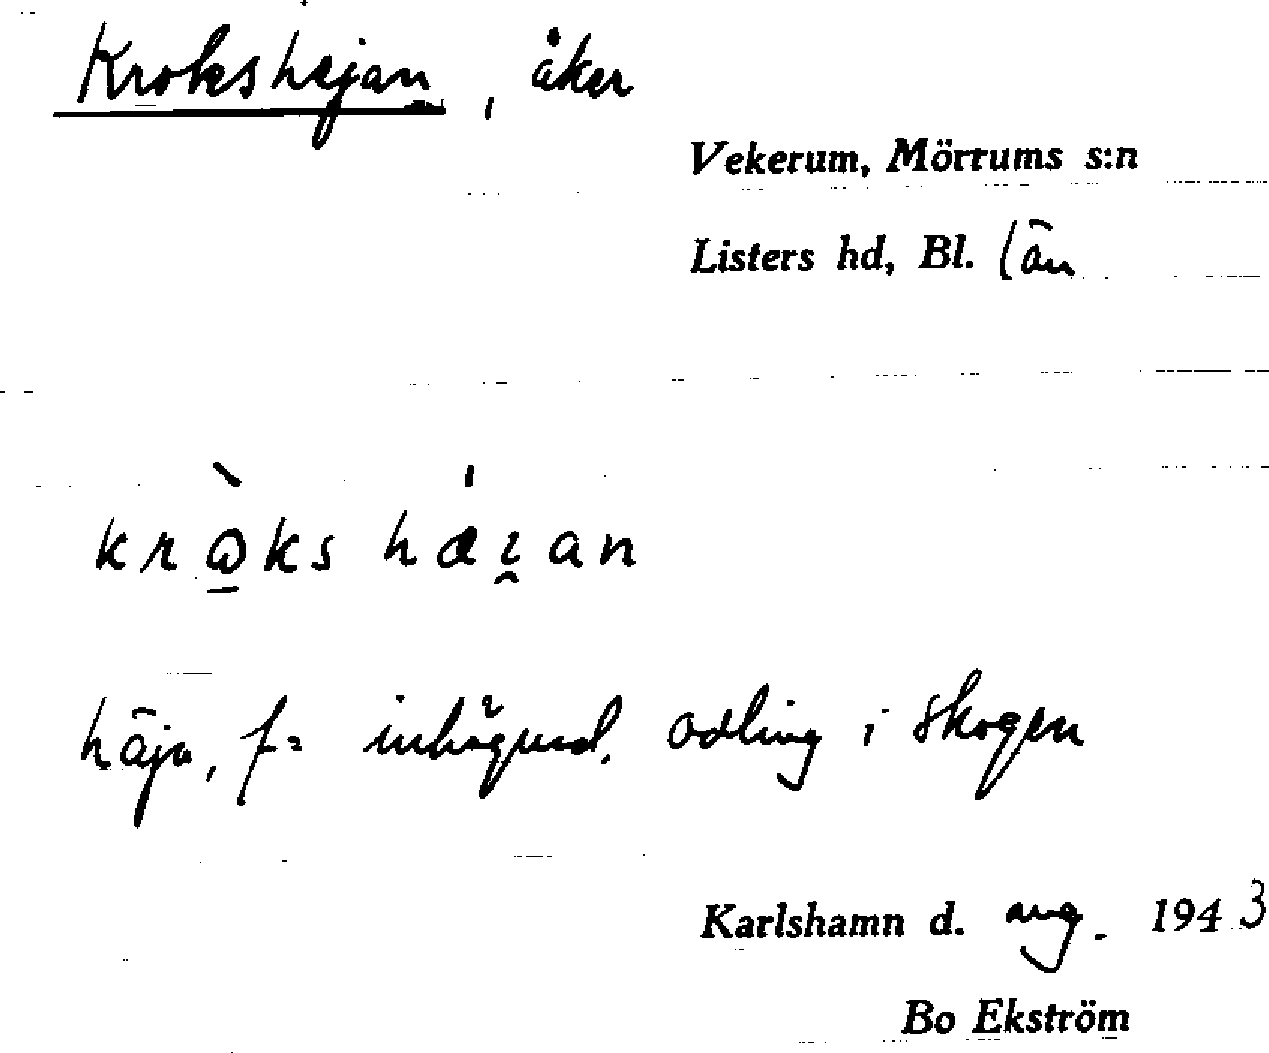 Krokshejan, åker
Vekerum, Mörrums s:n
Listers hd, Bl. län
krὼ̱ks hǽı̯an
häja, f= inhägnad, odling i skogen
Karlshamn d. aug. 1943
Bo Ekström